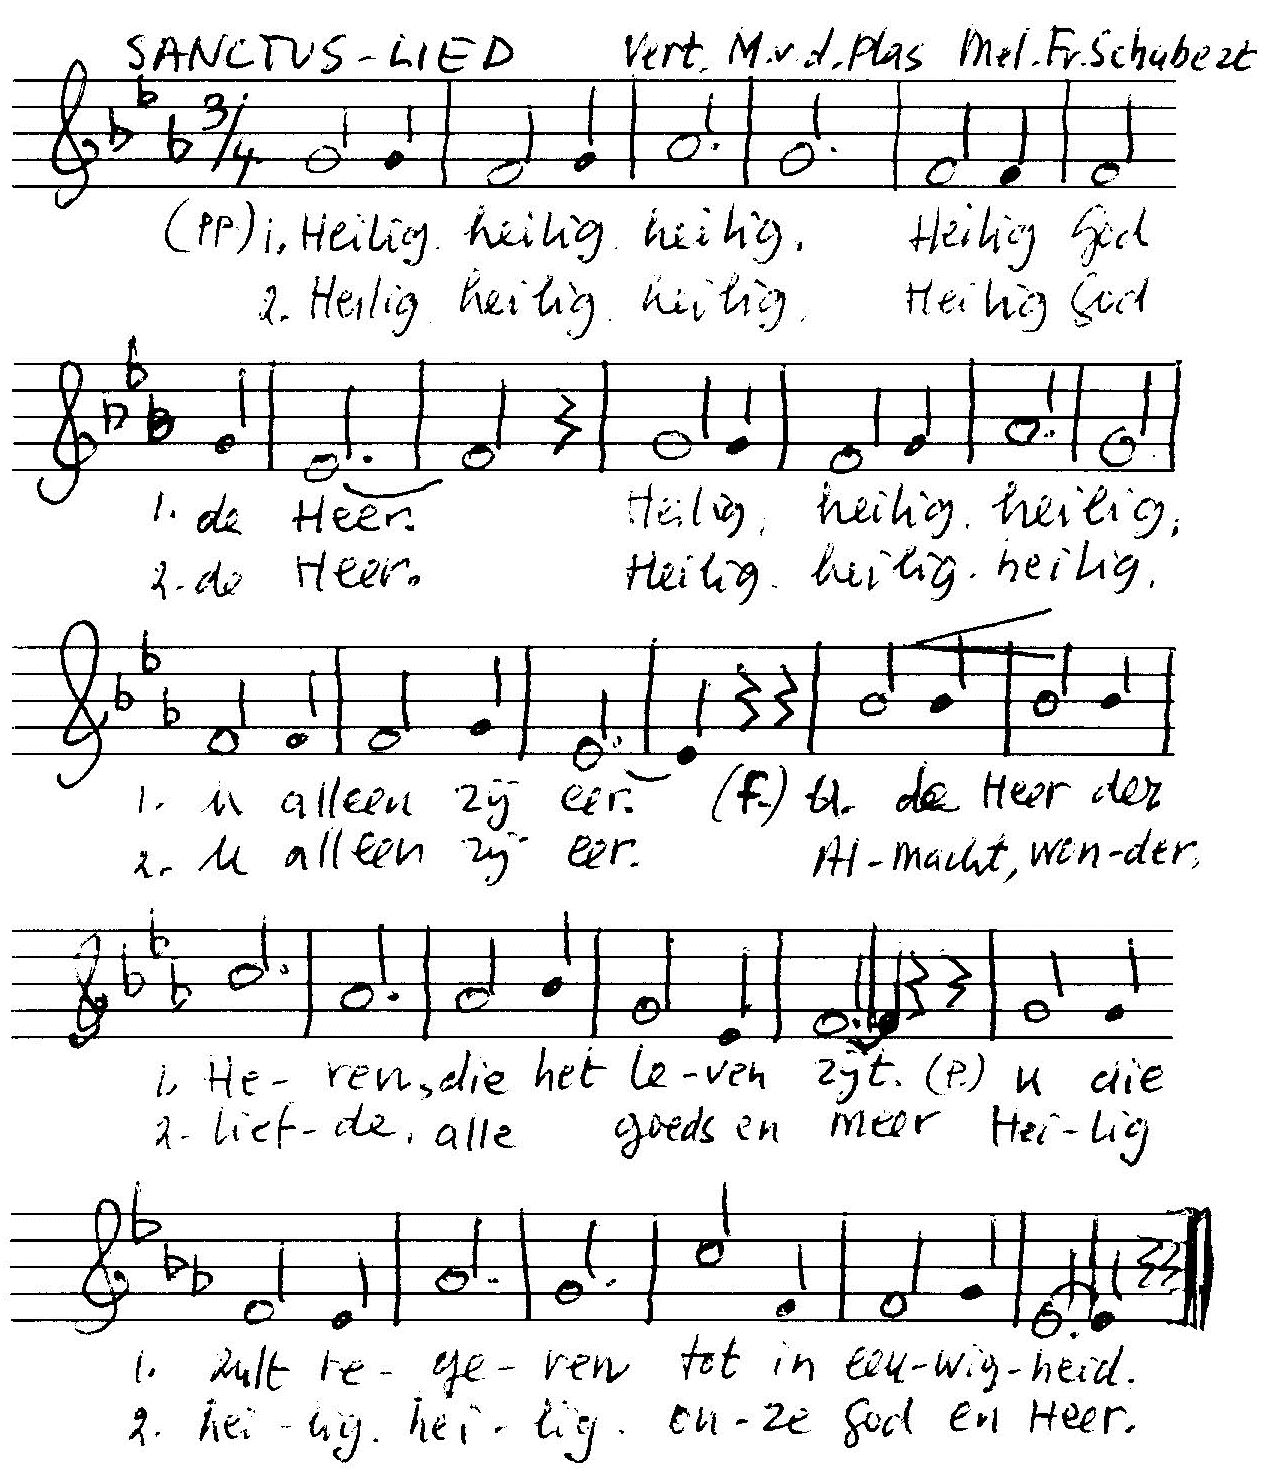 SANCTUS-LIED Vert. M.v.d.Plas Mel.Fr.Schubert
3/4
(PP) 1. Heilig. heilig. heilig. Heilig God
2. Heilig. heilig. heilig. Heilig God
1. de Heer. Heilig, heilig. heilig,
2. de Heer. Heilig. heilig. heilig.
1. u alleen zij eer. (f.) U. de Heer der
2. U alleen zij eer. Al-macht, won-der,
1. He-ren, die het le-ven zijt. (P.) u die
2. lief-de, alle goeds en meer Hei-lig
1. zult re-ge-ren tot in eeu-wig-heid.
2. hei-lig. hei-lig. on-ze God en Heer.